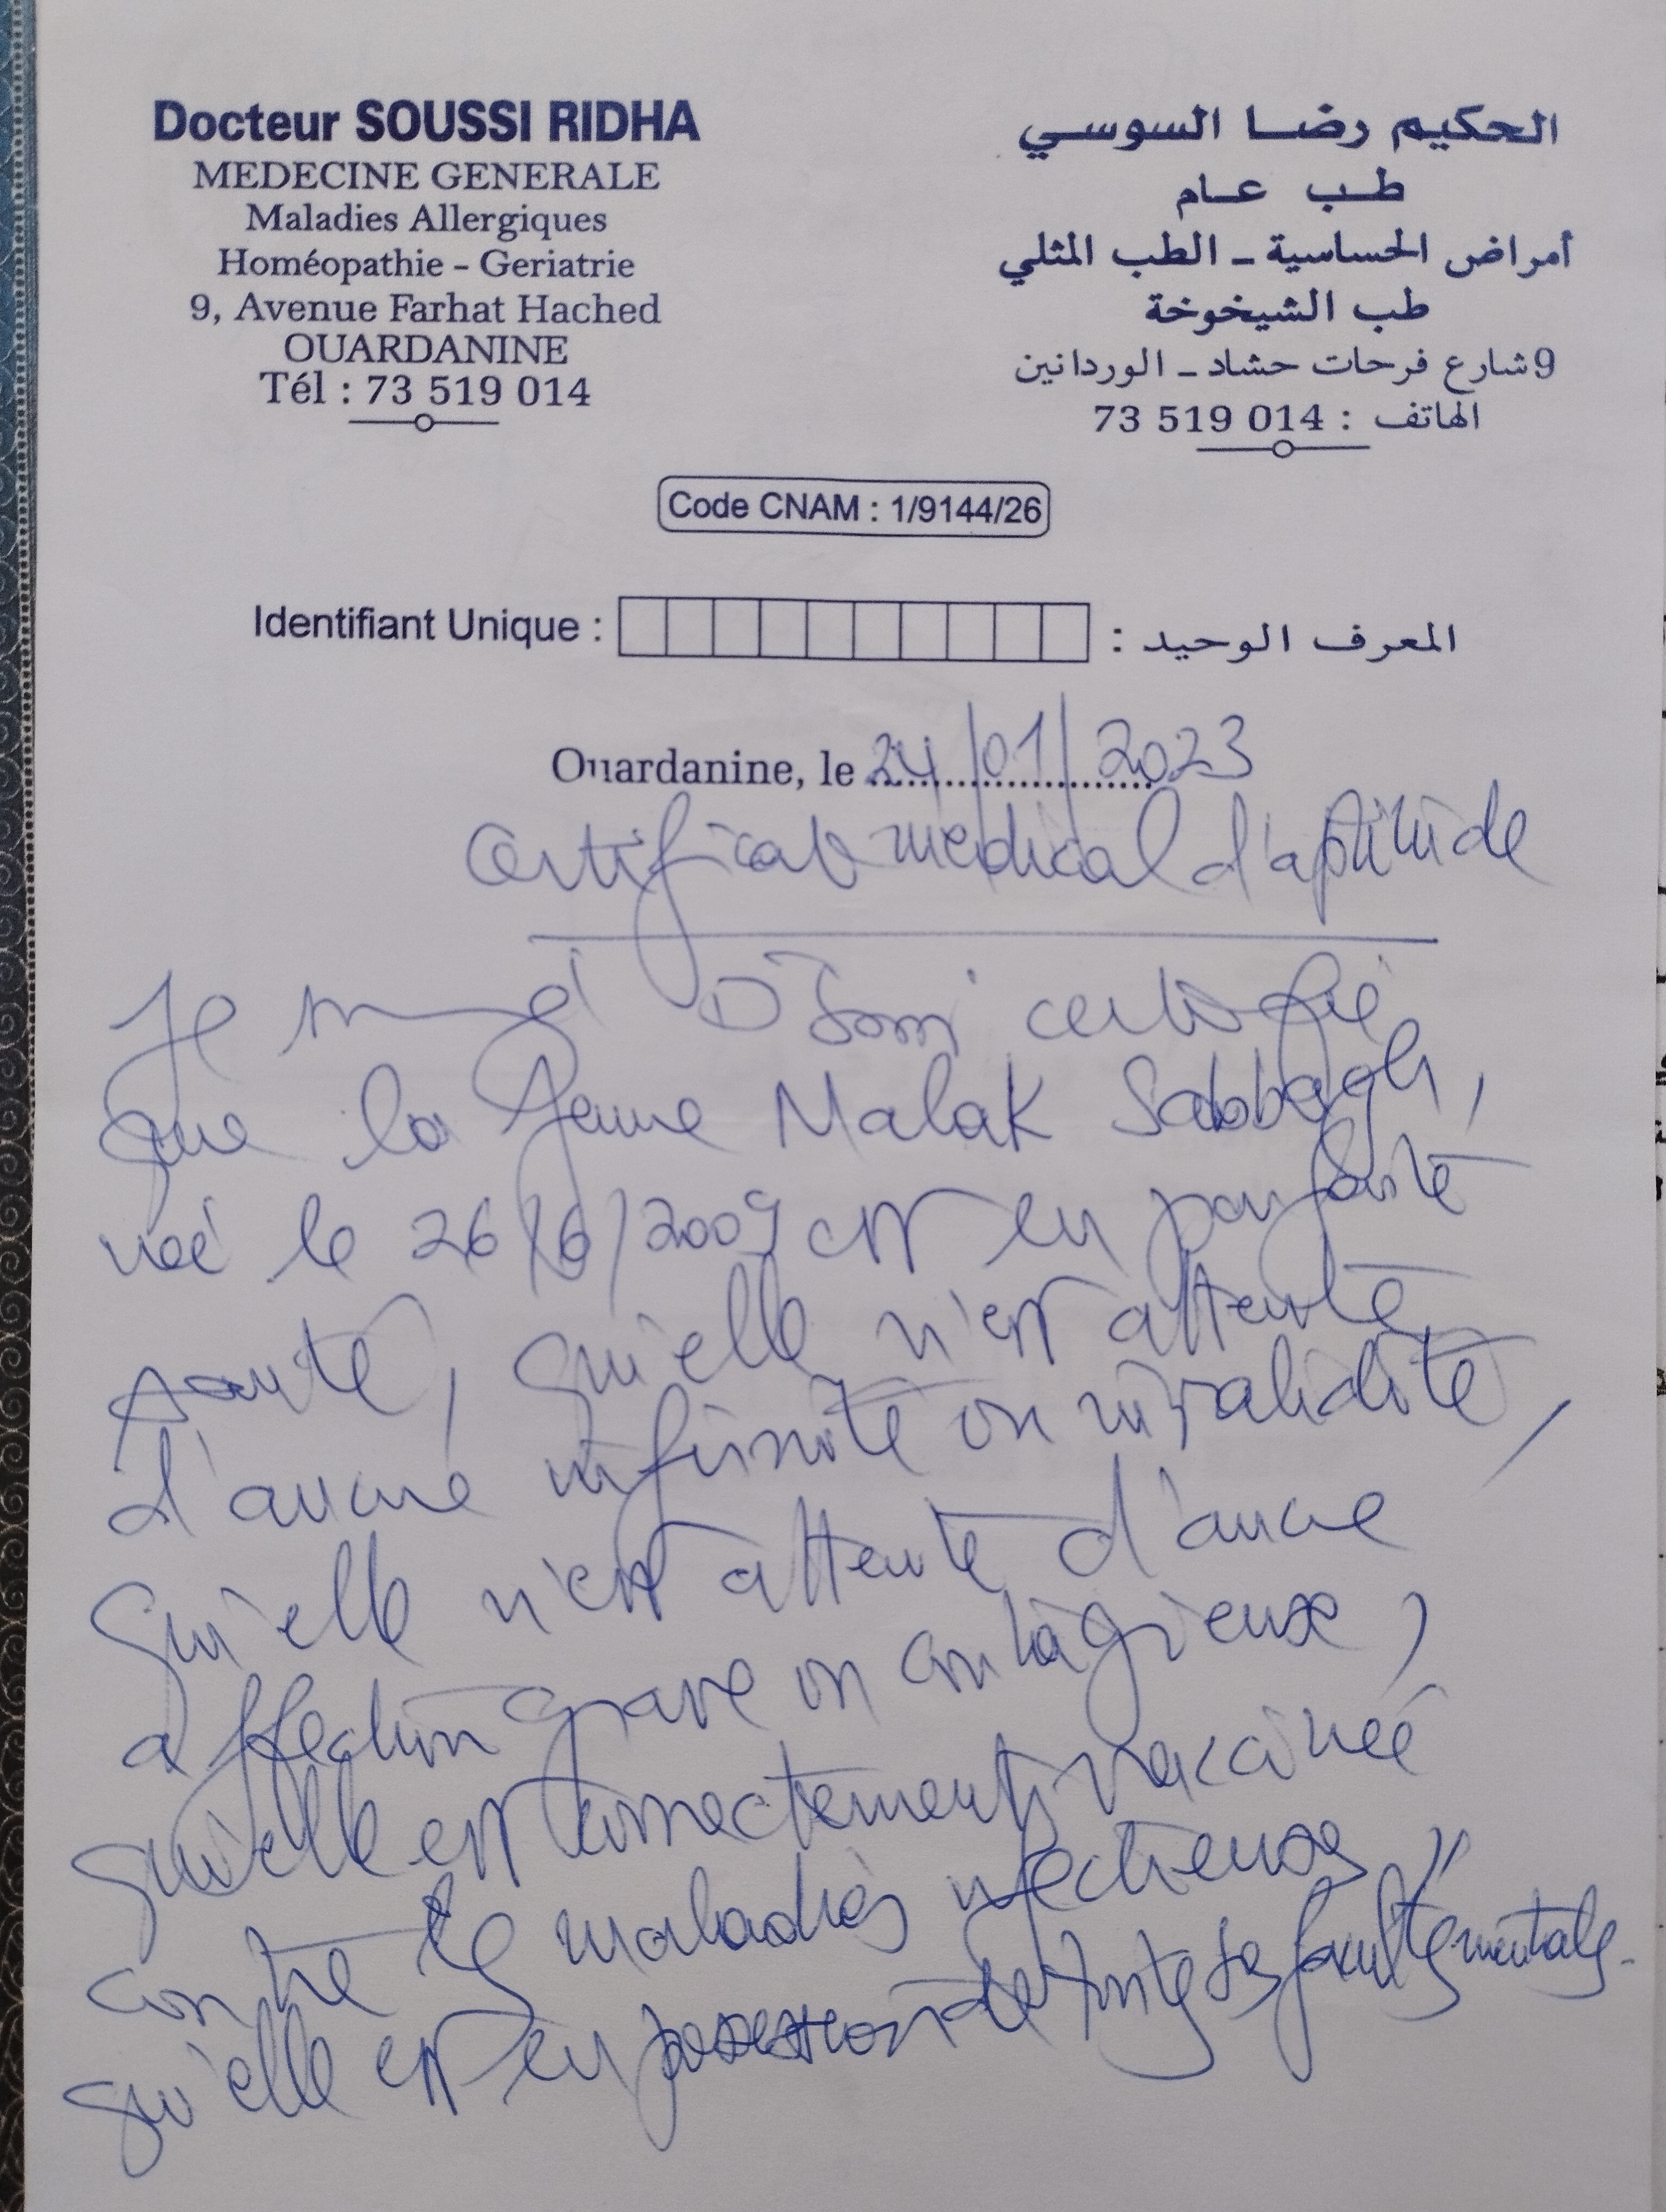 Docteur SOUSSI RIDHA
MEDECINE GENERALE
Maladies Allergiques
Homéopathie - Geriatrie
9, Avenue Farhat Hached
OUARDANINE
Tél : 73 519 014
الحكيم رضا السوسي
طب عام
أمراض الحساسية - الطب المثلي
طب الشيخوخة
9 شارع فرحات حشاد - الوردانين
الهاتف : 73 519 014
Code CNAM : 1/9144/26
Identifiant Unique : المعرف الوحيد :
Ouardanine, le 24/01/2023
Certificat médical d'aptitude
Je Dr Soussi certifie
que la jeune Malak Sabbagh,
née le 26/6/2009 est en parfaite
santé, qu'elle n'est atteinte
d'aucune infirmité ou invalidité,
qu'elle n'est atteinte d'aucune
affection grave ou contagieuse,
qu'elle est correctement vaccinée
contre les maladies infectieuses,
qu'elle est en possession de toutes ses facultés mentales.